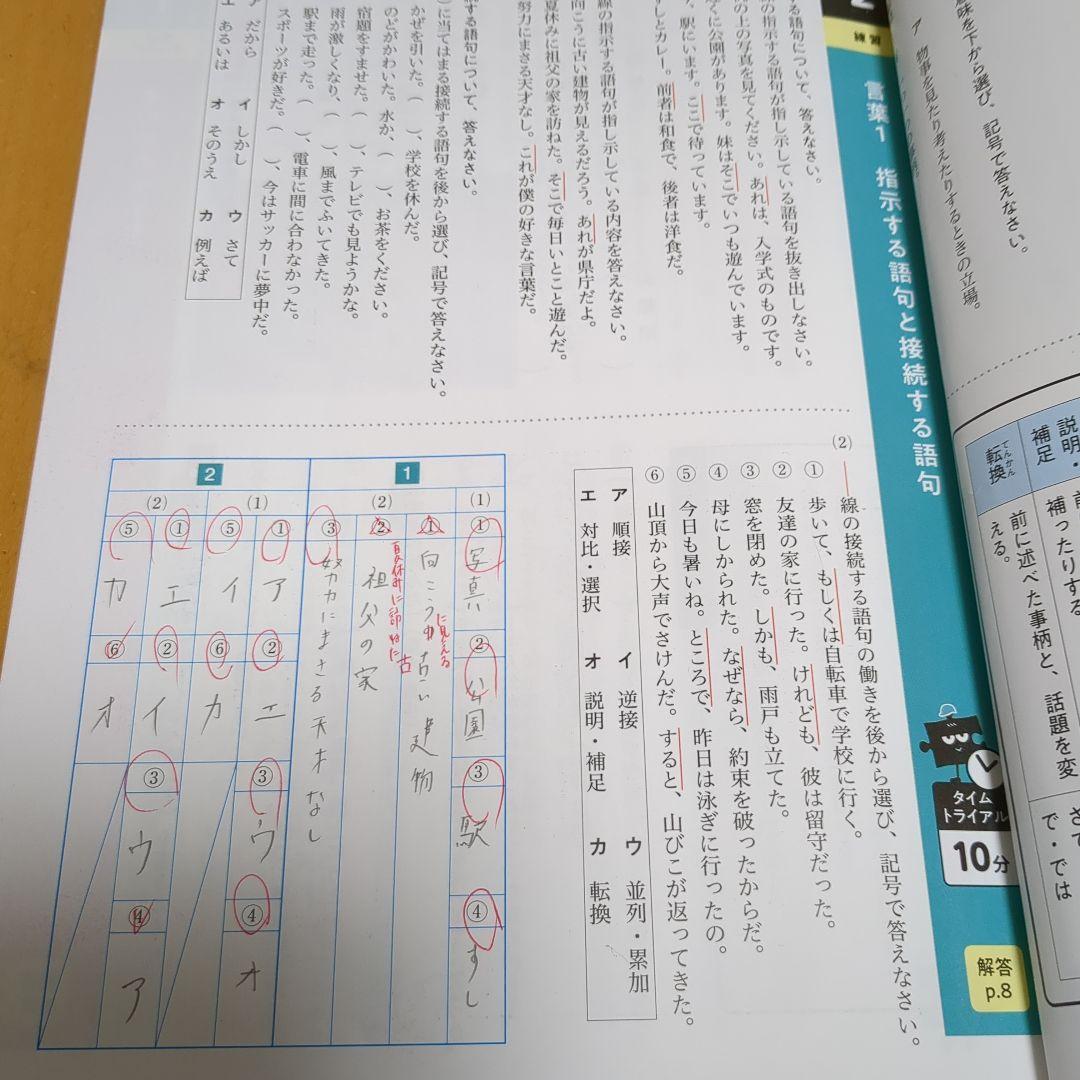 意味を下から選び、記号で答えなさい。
ア 物事を見たり考えたりするときの立場。
説明・補足
補ったりする
転換
てんかん
前に述べた事柄と、話題を変える。
で・では
練習
言葉1 指示する語句と接続する語句
タイムトライアル
10分
解答 p.8
する語句について、答えなさい。
の指示する語句が指し示している語句を抜き出しなさい。
の上の写真を見てください。あれは、入学式のものです。
くに公園があります。妹はそこでいつも遊んでいます。
駅にいます。ここで待っています。
すしとカレー。前者は和食で、後者は洋食だ。
線の指示する語句が指し示している内容を答えなさい。
向こうに古い建物が見えるだろう。あれが県庁だよ。
夏休みに祖父の家を訪ねた。そこで毎日いとこと遊んだ。
努力にまさる天才なし。これが僕の好きな言葉だ。
する語句について、答えなさい。
)に当てはまる接続する語句を後から選び、記号で答えなさい。
かぜを引いた。( )、学校を休んだ。
のどがかわいた。水か、( )、お茶をください。
宿題をすませた。( )、テレビでも見ようかな。
雨が激しくなり、( )、風までふいてきた。
駅まで走った。( )、電車に間に合わなかった。
スポーツが好きだ。( )、今はサッカーに夢中だ。
ア だから イ しかし ウ さて
エ あるいは オ そのうえ カ 例えば
(2) 線の接続する語句の働きを後から選び、記号で答えなさい。
① 歩いて、もしくは自転車で学校に行く。
② 友達の家に行った。けれども、彼は留守だった。
③ 窓を閉めた。しかも、雨戸も立てた。
④ 母にしかられた。なぜなら、約束を破ったからだ。
⑤ 今日も暑いね。ところで、昨日は泳ぎに行ったの。
⑥ 山頂から大声でさけんだ。すると、山びこが返ってきた。
ア 順接 イ 逆接 ウ 並列・累加
エ 対比・選択 オ 説明・補足 カ 転換
1
(1)
① 写真 ② 公園 ③ 駅 ④ すし
(2)
① 向こうの古い建物
に見える
② 祖父の家
夏休みに訪ねた
③ 努力にまさる天才なし
2
(1)
① ア ② エ ③ ウ ④ オ
⑤ イ ⑥ カ
(2)
① エ ② イ ③ ウ ④ ア
⑤ カ ⑥ オ